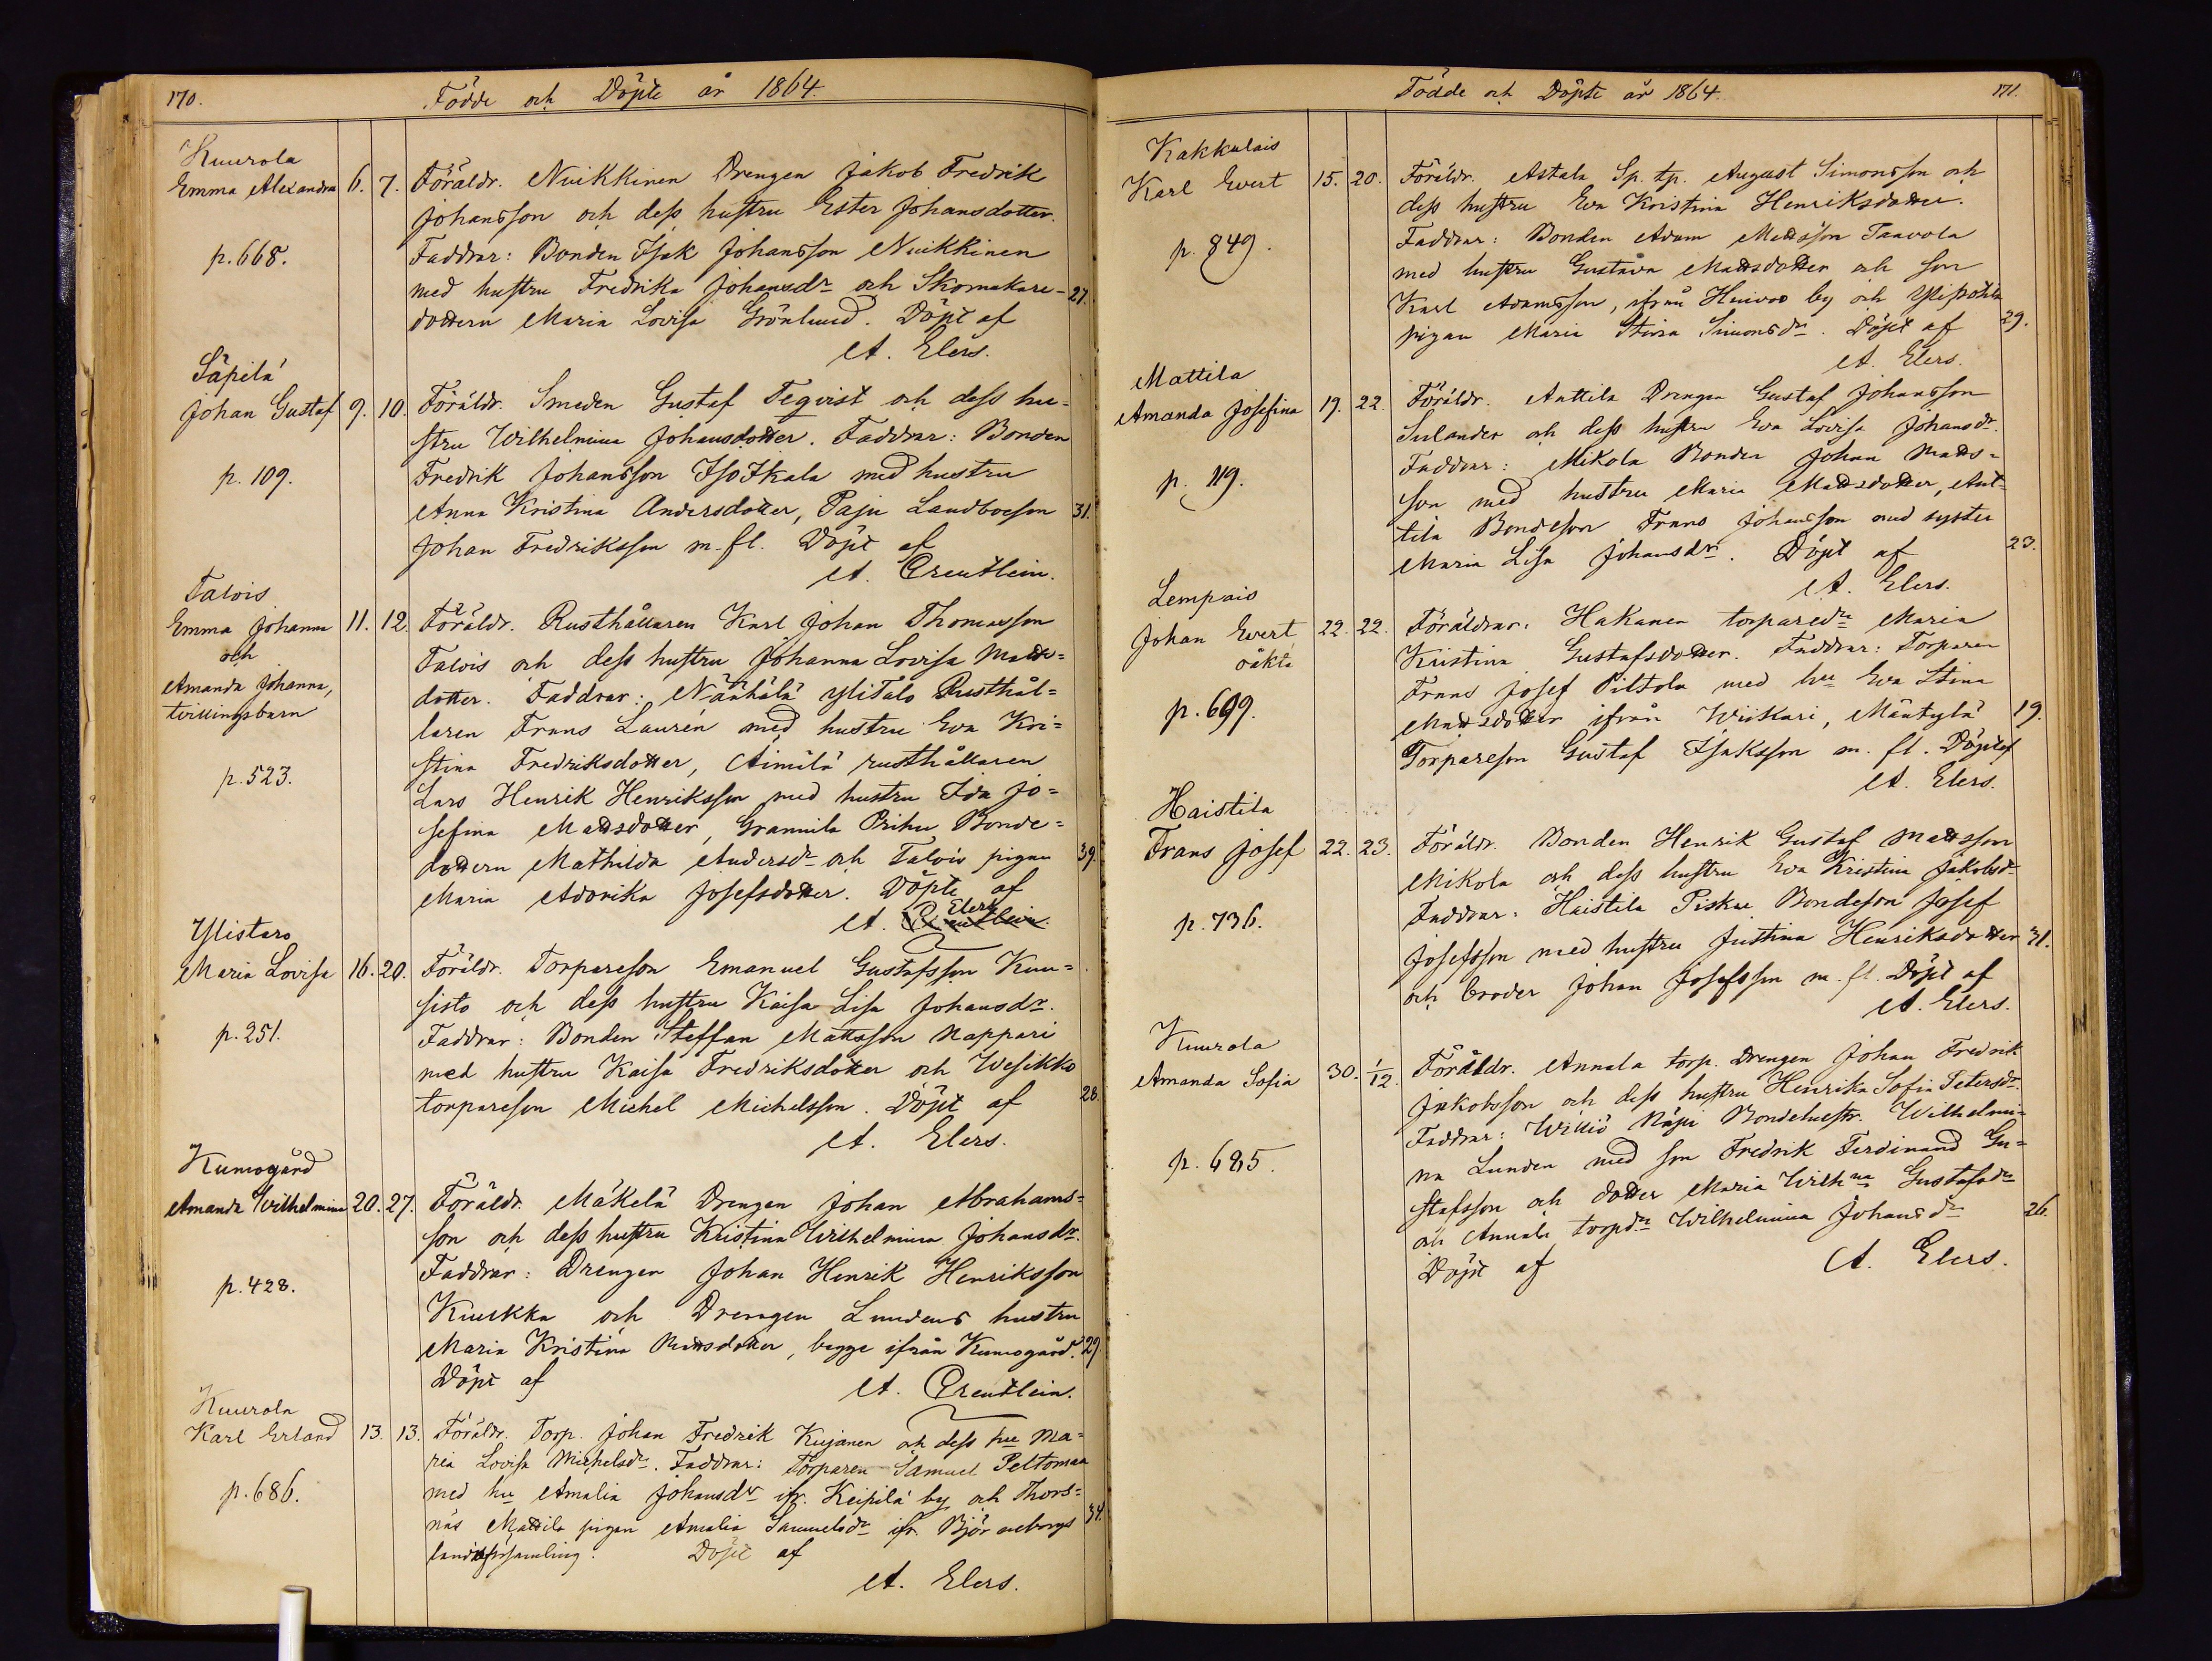 170.
Födde och Döpte år 1864.
Kuurola
Emma Alexandra 6. 7. Föräldr. Nuikkinen Drengen Jakob Fredrik
Johansson och dess hustru Ester Johansdotter.
p. 668. Faddrar: Bonden Isak Johansson Nuikkinen
med hustru Fredrika Johansdr och Skomakare- 27.
dottern Maria Lovisa Grönlund. Döpt af
A. Elers.
Säpilä
Johan Gustaf 9. 10. Föräldr. Smeden Gustaf Tegvist och dess hu-
stru Wilhelmina Johansdotter. Faddrar: Bonden
p. 109. Fredrik Johansson IsoIkala med hustru
Anna Kristina Andersdotter, Paju Landboeson 31.
Johan Fredriksson m. fl. Döpt af
A. Creutlein.
Talois
Emma Johanna 11. 12. Föräldr. Rusthållaren Karl Johan Thomasson
och
Talois och dess hustru Johanna Lovisa Matts-
Amanda Johanna,
dotter. Faddrar: Näähälä YliTalo Rusthål-
tvillingsbarn
laren Frans Lauren med hustru Eva Kri-
p. 523. stina Fredriksdotter, Aimälä rusthållaren
Lars Henrik Henriksson med hustru Ida Jo-
sefina Mattsdotter, Grannila Prihu Bonde-
dottern Mathilda Andersdr och Talois pigan 39.
Maria Adorika Josefsdotter. Döpte af
A. Elers
Ylistaro
Maria Lovisa 16. 20. Föräldr. Torpareson Emanuel Gustafsson Kuu-
sisto och dess hustru Kaisa Lisa Johansdr.
p. 251. Faddrar: Bonden Steffan Mattsson Nappari
med hustru Kaisa Fredriksdotter och Wesikko
torpareson Michel Michelsson. Döpt af 28.
A. Elers.
Kumogård
Amanda Wilhelmina 20. 27. Föräldr. Mäkelä Drengen Johan Abrahams-
son och dess hustru Kristina Wilhelmina Johansdr.
p. 428. Faddrar: Drengen Johan Henrik Henriksson
Kiukka och Drengen Lundens hustru
Maria Kristina Mattsdotter, begge ifrån Kumogård. 29.
Döpt af A. Creutlein.
Kuurola
Karl Erland 13. 13. Föräldr. Torp. Johan Fredrik Kujanen och dess hu Ma-
ria Lovisa Michelsdr. Faddrar: Torparen Samuel Peltomaa
p. 686. med hu Amalia Johansdr ifr. Keipilä by och Thors-
näs Mattila pigan Amalia Samuelsdr ifr. Björneborgs 34.
landsförsamling. Döpt af
A. Elers.
Födde och Döpte år 1864.
171.
Kakkulais
Karl Evert 15. 20. Föräldr. Astala Sp. tp. August Simonsson och
dess hustru Eva Kristina Henriksdotter.
p. 849. Faddrar: Bonden Adam Mattsson Taavola
med hustru Gustava Mattsdotter och son
Karl Adamsson, ifrån Huivoo by och
pigan Maria Stina Simonsdr. Döpt af 29.
A. Elers.
Mattila
Amanda Josefina 19. 22. Föräldr. Anttila Drengen Gustaf Johansson
Sulander och dess hustru Eva Lovisa Johansdr.
p. 119. Faddrar: Mikola Bonden Johan Matts-
son med hustru Maria Mattsdotter, Ant-
tila Bondeson Frans Johansson med syster
Maria Lisa Johansdr. Döpt af 23.
A. Elers.
Lempais
Johan Evert 22. 22. Föräldrar: Hakanen torparedr Maria
oäkta
Kristina Gustafsdotter. Faddrar: Torparen
p. 699. Frans Josef Piltola med hu Eva Stina
Mattsdotter ifrån Wiikari, Mäntylä 19.
Torpareson Gustaf Isaksson m. fl. Döpt af
A. Elers.
Haistila
Frans Josef 22. 23. Föräldr. Bonden Henrik Gustaf Mattsson
Mikola och dess hustru Eva Kristina Jakobsdr
p. 736. Faddrar: Haistila Piskue Bondeson Josef
Josefsson med hustru Justina Henriksdotter 31.
och broder Johan Josefsson m. fl. Döpt af
A. Elers.
Kuurola
Amanda Sofia 30. 1/12. Föräldr. Annala torp. Drengen Johan Fredrik
Jakobsson och dess hustru Henrika Sofia Petersdr.
p. 685. Faddrar: Williö Näpi Bondehustr. Wilhelmi-
na Lunden med son Fredrik Ferdinand Gu-
stafsson och dotter Maria Wilhna Gustafsdr
och Annala torpdr Wilhelmina Johansdr 26.
Döpt af A. Elers.